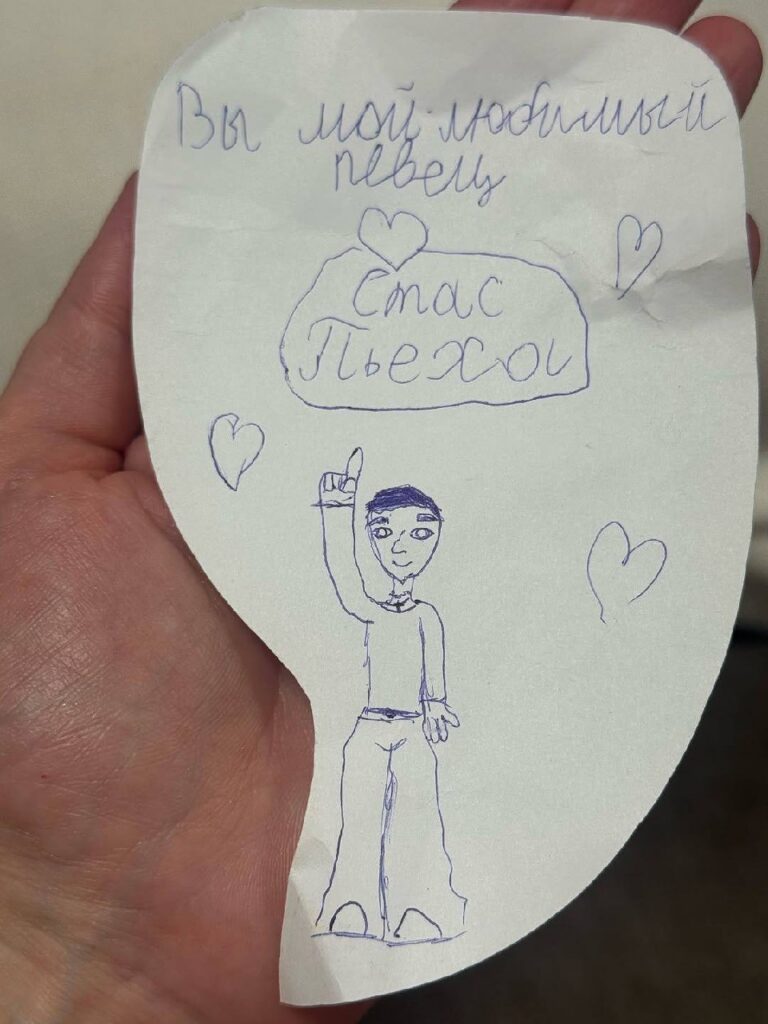 Вы мой любимый
певец
Стас
Пьеха